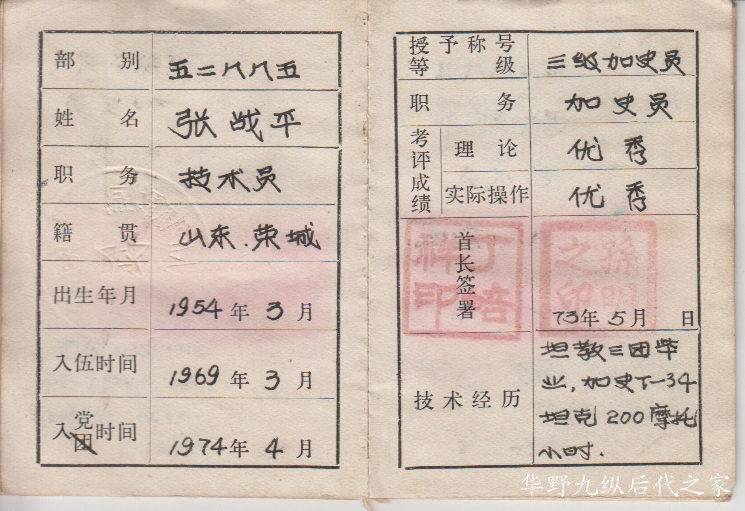 部别 五二八八五
姓名 张战平
职务 技术员
籍贯 山东.荣城
出生年月 1954年3月
入伍时间 1969年3月
入党团时间 1974年4月
授予称号等级 三级加史员
职务 加史员
考评成绩 理论 优秀
实际操作 优秀
首长签署 73年5月 日
技术经历 坦教三团毕
业,加史T-34
坦克200摩托
小时.
华野九纵后代之家